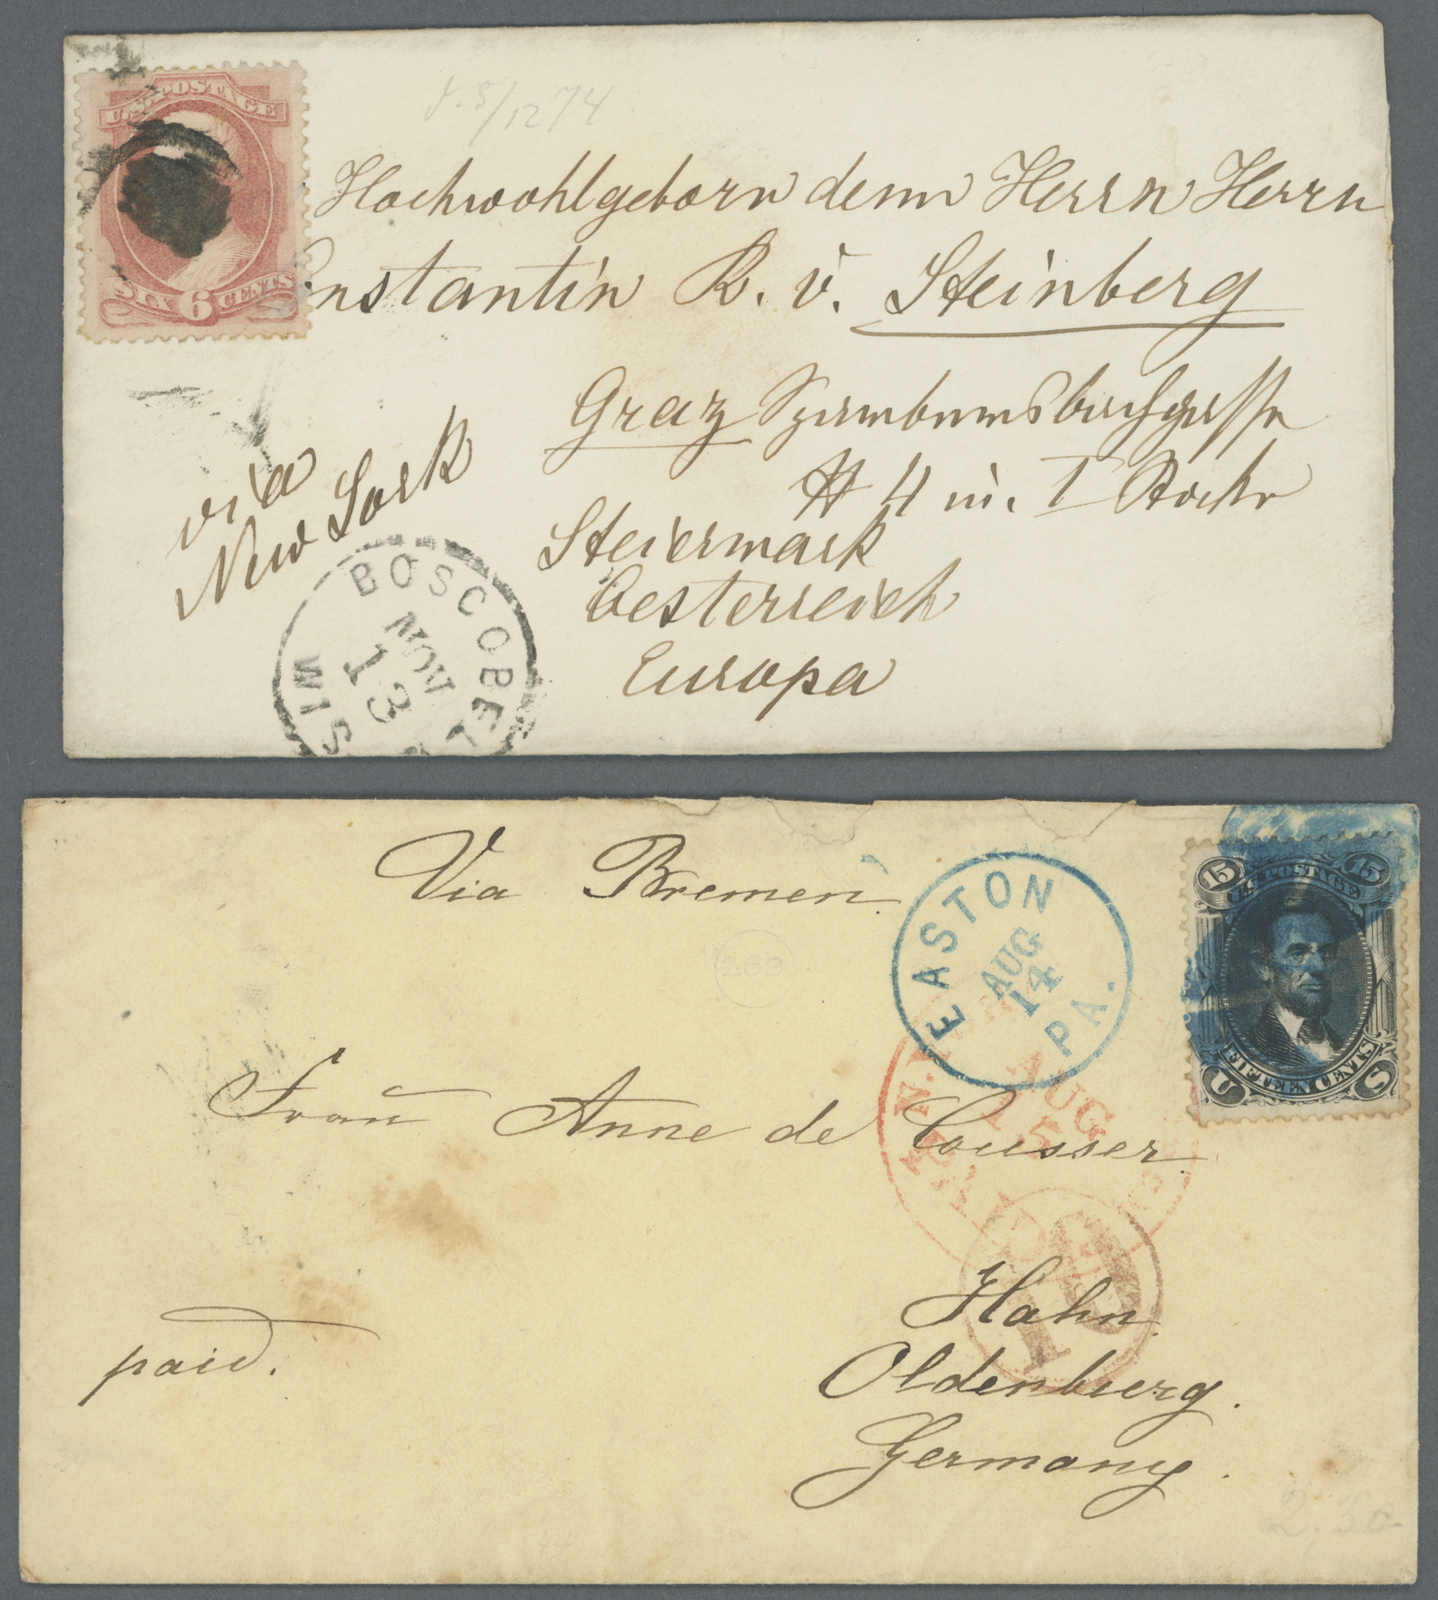 U.S. POSTAGE
SIX 6 CENTS
5/12 74
Hochwohlgeborn dem Herrn Herrn
Constantin R. v. Steinberg
Graz
# 4 in. I Stock
Steiermark
Oesterreich
Europa
via
New York
BOSCOBEL
NOV
13
WIS
Via Bremen.
EASTON
AUG
14
PA.
15 U.S. POSTAGE 15
U FIFTEEN CENTS S
N.
AUG
15
PAID
10
Frau Anne de Cousser.
paid.
Hahn.
Oldenburg.
Germany.
2.50